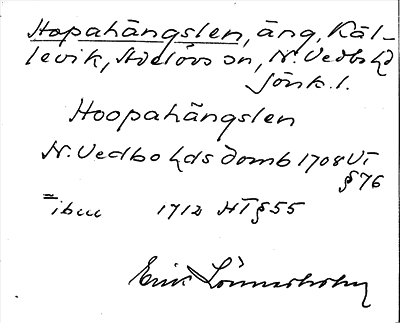 Hopahängslen, äng, Käl-
levik, Adelövs sn, N. Vedbo hd
Jönk. l.
Hoopahängslen
N. Vedbo hds domb 1708 VT
§ 76
= ibm 1712 HT § 55
Erik Lönnerholm